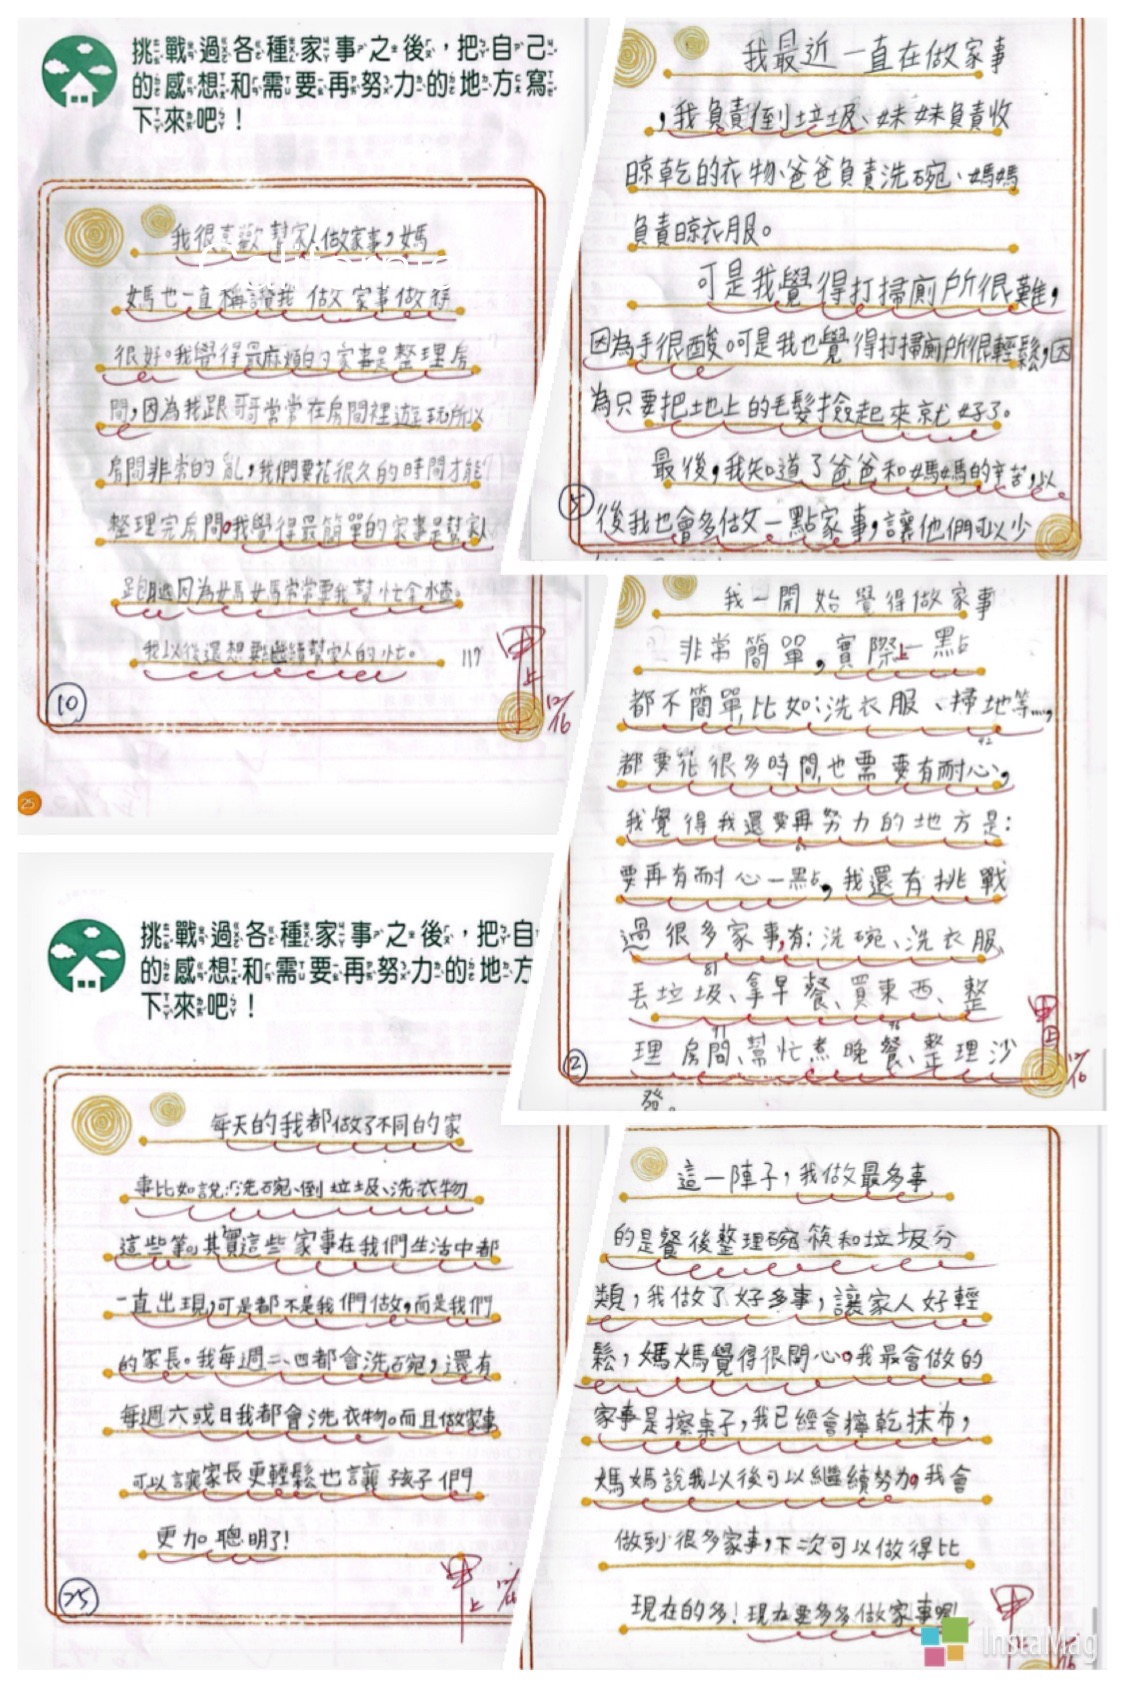 挑戰過各種家事之後，把自己
的感想和需要再努力的地方寫
下來吧！
我很喜歡幫家人做家事，媽
媽也一直稱讚我做家事做得
很好。我覺得最麻煩的家事是整理房
間，因為我跟哥哥常常在房間裡遊玩所以
房間非常的亂，我們要花很久的時間才能
整理完房間。我覺得最簡單的家事是幫家人
因為媽媽常常要我幫忙拿水壺。
我以後還想要繼續幫家人的忙。
117
甲上
12/16
10
25
我最近一直在做家事
，我負責倒垃圾、妹妹負責收
晾乾的衣物、爸爸負責洗碗、媽媽
負責晾衣服。
可是我覺得打掃廁所很難，
因為手很酸。可是我也覺得打掃廁所很輕鬆，因
為只要把地上的毛髮撿起來就好了。
最後，我知道了爸爸和媽媽的辛苦，以
後我也會多做一點家事，讓他們可以少
5
我一開始覺得做家事
非常簡單，實際上一點
都不簡單，比如：洗衣服、掃地等…，
都要花很多時間，也需要有耐心，
我覺得我還要再努力的地方是：
要再有耐心一點，我還有挑戰
過很多家事，有：洗碗、洗衣服、
丟垃圾、拿早餐、買東西、整
理房間、幫忙煮晚餐、整理沙
發。
甲上
12/16
2
挑戰過各種家事之後，把自
的感想和需要再努力的地方
下來吧！
每天的我都做了不同的家
事比如說：洗碗、倒垃圾、洗衣物
這些等。其實這些家事在我們生活中都
一直出現，可是都不是我們做，而是我們
的家長。我每週二、四都會洗碗，還有
每週六或日我都會洗衣物。而且做家事
可以讓家長更輕鬆也讓孩子們
更加聰明了！
甲上
25
這一陣子，我做最多事
的是餐後整理碗筷和垃圾分
類，我做了好多事，讓家人好輕
鬆，媽媽覺得很開心。我最會做的
家事是擦桌子，我已經會擰乾抹布，
媽媽說我以後可以繼續努力。我會
做到很多家事，下次可以做得比
現在的多！現在要多多做家事喔！
甲
InstaMag